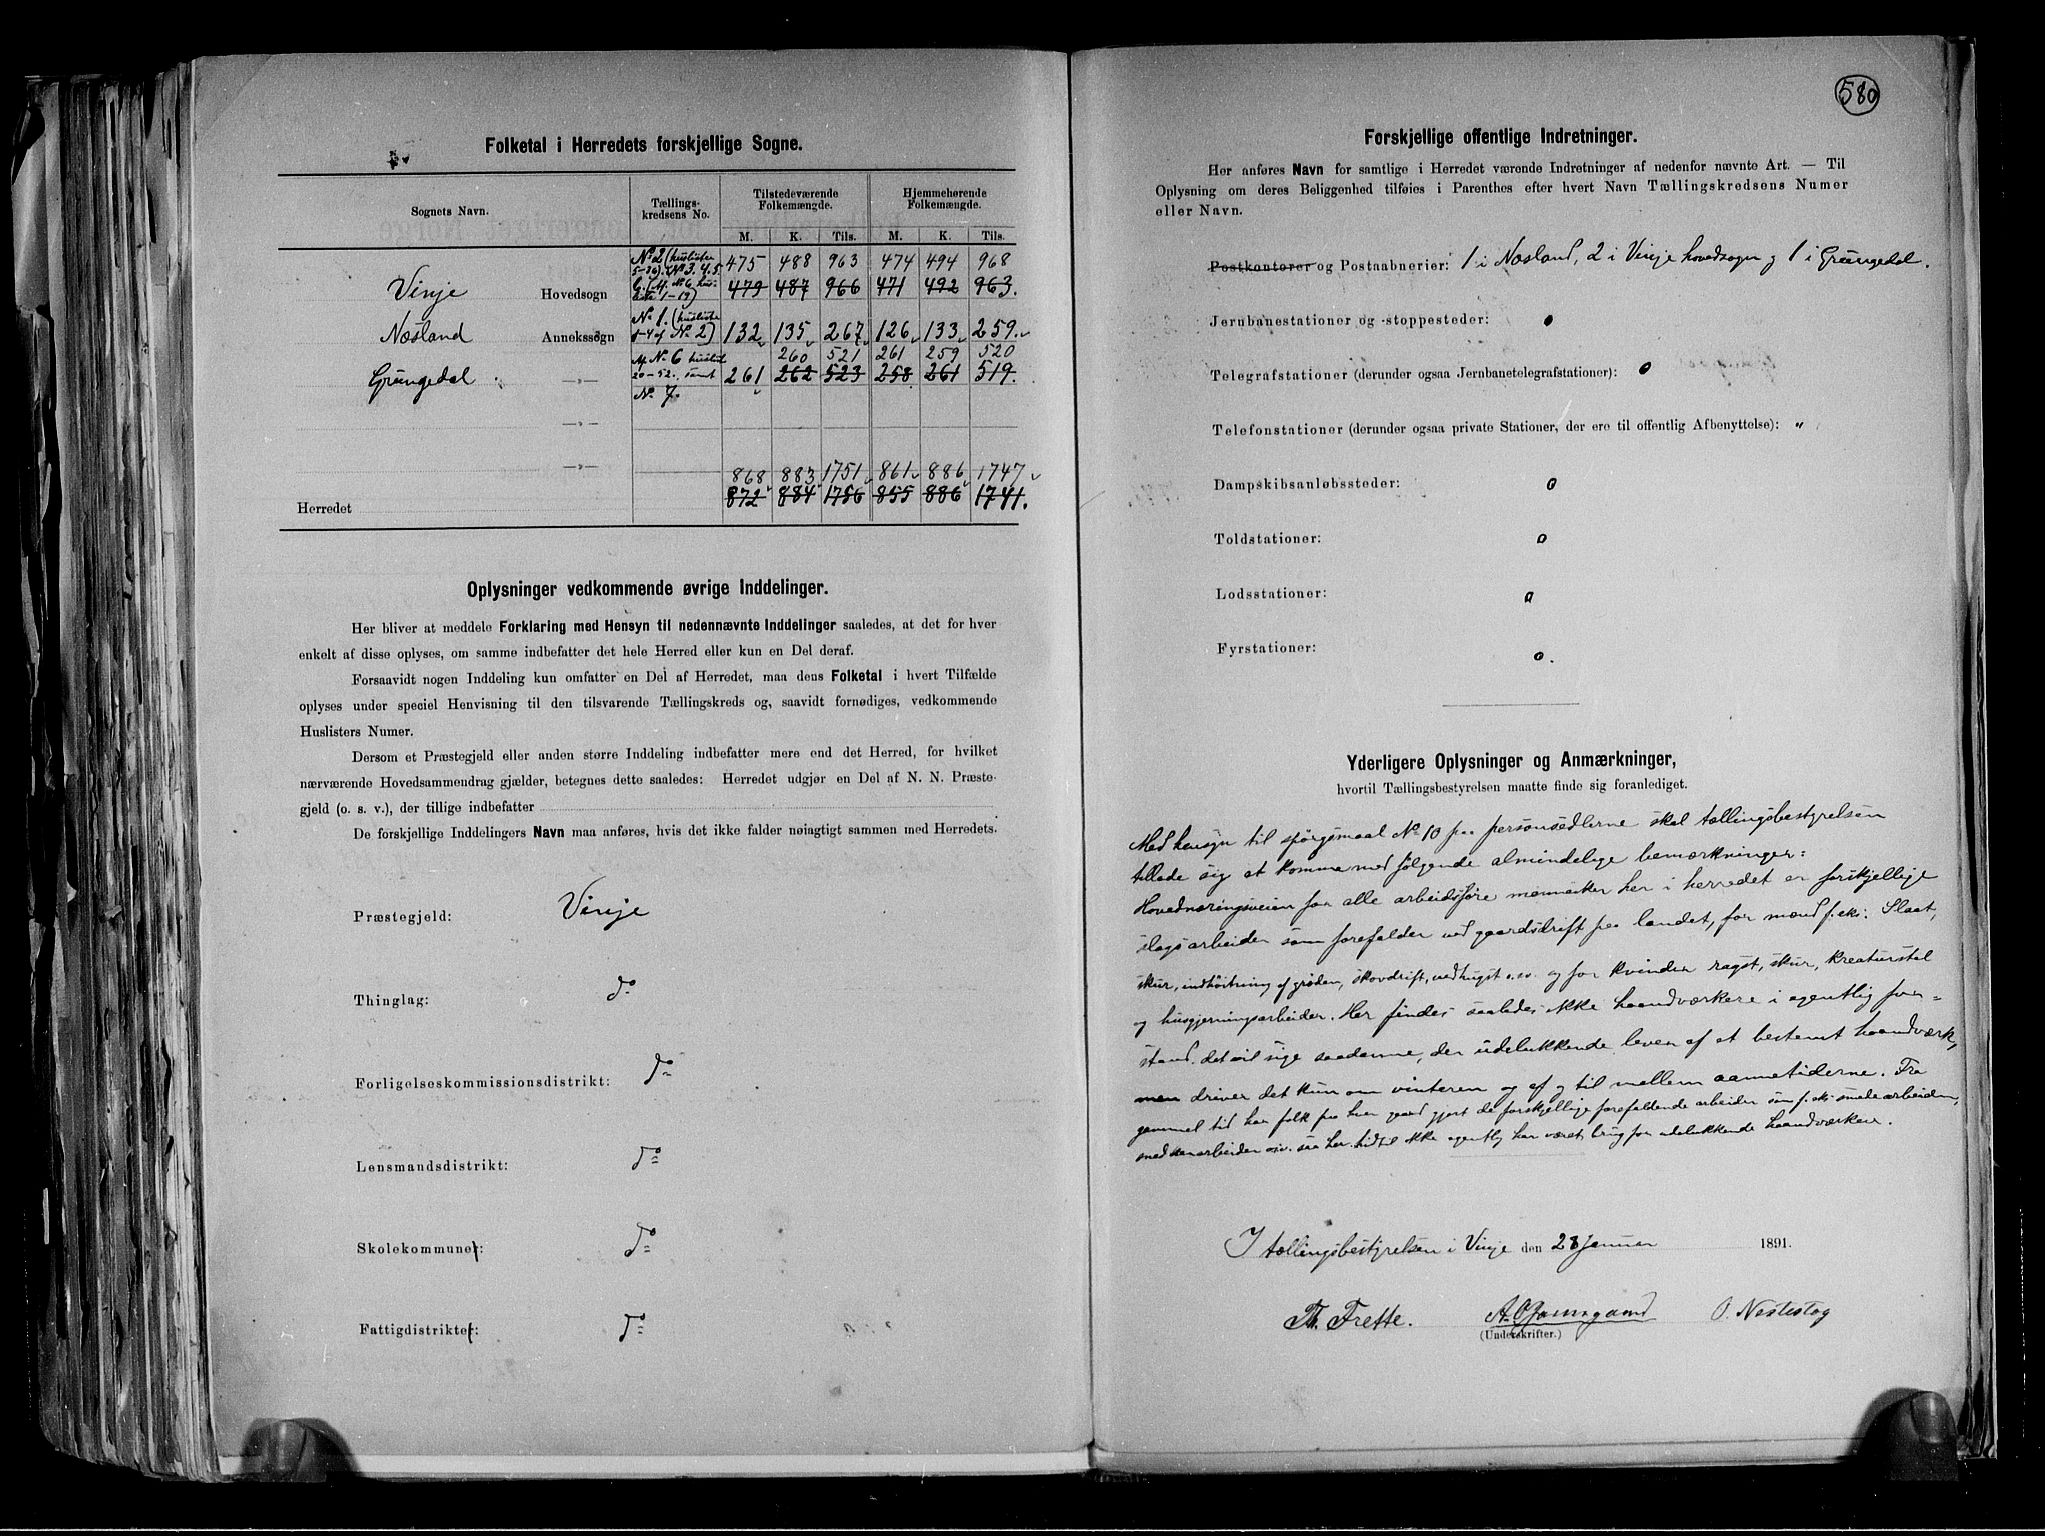 Folketal i Herredets forskjellige Sogne.
Sognets Navn.
Tællings-
kredsens No.
Tilstedeværende
Folkemængde.
Hjemmehørende
Folkemængde.
M. K. Tils. M. K. Tils.
No 2 (huslister
5-36). No 3. 4. 5. 475 488 963 474 494 968
Vinje Hovedsogn 479 487 966 471 492 963.
No 1. (husliste
Næsland Annekssogn 1-4 af No 2) 132 135 267 126 133 259.
Af No 6 huslist 260 521 261 259 520
Grungedal —»— 20-52. samt 261 262 523 258 261 519.
No 7.
—»—
—»—
868 883 1751 861 886 1747
Herredet 872 884 1756 855 886 1741.
Oplysninger vedkommende øvrige Inddelinger.
Her bliver at meddele Forklaring med Hensyn til nedennævnte Inddelinger saaledes, at det for hver
enkelt af disse oplyses, om samme indbefatter det hele Herred eller kun en Del deraf.
Forsaavidt nogen Inddeling kun omfatter en Del af Herredet, maa dens Folketal i hvert Tilfælde
oplyses under speciel Henvisning til den tilsvarende Tællingskreds og, saavidt fornødiges, vedkommende
Huslisters Numer.
Dersom et Præstegjeld eller anden større Inddeling indbefatter mere end det Herred, for hvilket
nærværende Hovedsammendrag gjælder, betegnes dette saaledes: Herredet udgjør en Del af N. N. Præste-
gjeld (o. s. v.), der tillige indbefatter
De forskjellige Inddelingers Navn maa anføres, hvis det ikke falder nøiagtigt sammen med Herredets.
Præstegjeld: Vinje
Thinglag: do
Forligelseskommissionsdistrikt: do
Lensmandsdistrikt: do
Skolekommuner: do
Fattigdistrikter: do
580
Forskjellige offentlige Indretninger.
Her anføres Navn for samtlige i Herredet værende Indretninger af nedenfor nævnte Art. — Til
Oplysning om deres Beliggenhed tilføies i Parenthes efter hvert Navn Tællingskredsens Numer
eller Navn.
Postkontorer og Postaabnerier: 1 i Næsland, 2 i Vinje hovedsogn og 1 i Grungedal.
Jernbanestationer og -stoppesteder: 0
Telegrafstationer (derunder ogsaa Jernbanetelegrafstationer): 0
Telefonstationer (derunder ogsaa private Stationer, der ere til offentlig Afbenyttelse): "
Dampskibsanløbssteder: 0
Toldstationer: 0
Lodsstationer: 0
Fyrstationer: 0.
Yderligere Oplysninger og Anmærkninger,
hvortil Tællingsbestyrelsen maatte finde sig foranlediget.
Med hensyn til spørgsmaal No 10 paa personsedlerne skal tællingsbestyrelsen
tillade sig at komme med følgende almindelige bemærkninger:
Hovednæringsveien for alle arbeidsføre mennesker her i herredet er forskjellige
slags arbeider som forefalder ved gaardsdrift paa landet, for mænd f. eks. Slaat,
skur, indhøstning af grøden, skovdrift, vedhugst o.s.v. og for kvinder ragst, skur, kreaturstel
og husgjerningsarbeider. Her findes saaledes ikke haandværkere i egentlig for=
stand. det vil sige saadanne, der udelukkende lever af et bestemt haandværk,
men driver det kun om vinteren og af og til mellem aannetiderne. Fra
gammel tid har folk paa hver gaard gjort de forskjellige forefaldende arbeider som f. eks. smedearbeider,
snedkerarbeider osv. saa her tidtil ikke egentlig har været brug for udelukkende haandværkere.
I tællingsbestyrelsen i Vinje den 28 Januar 1891.
Th. Frette. O. Nestestog
(Underskrifter.)